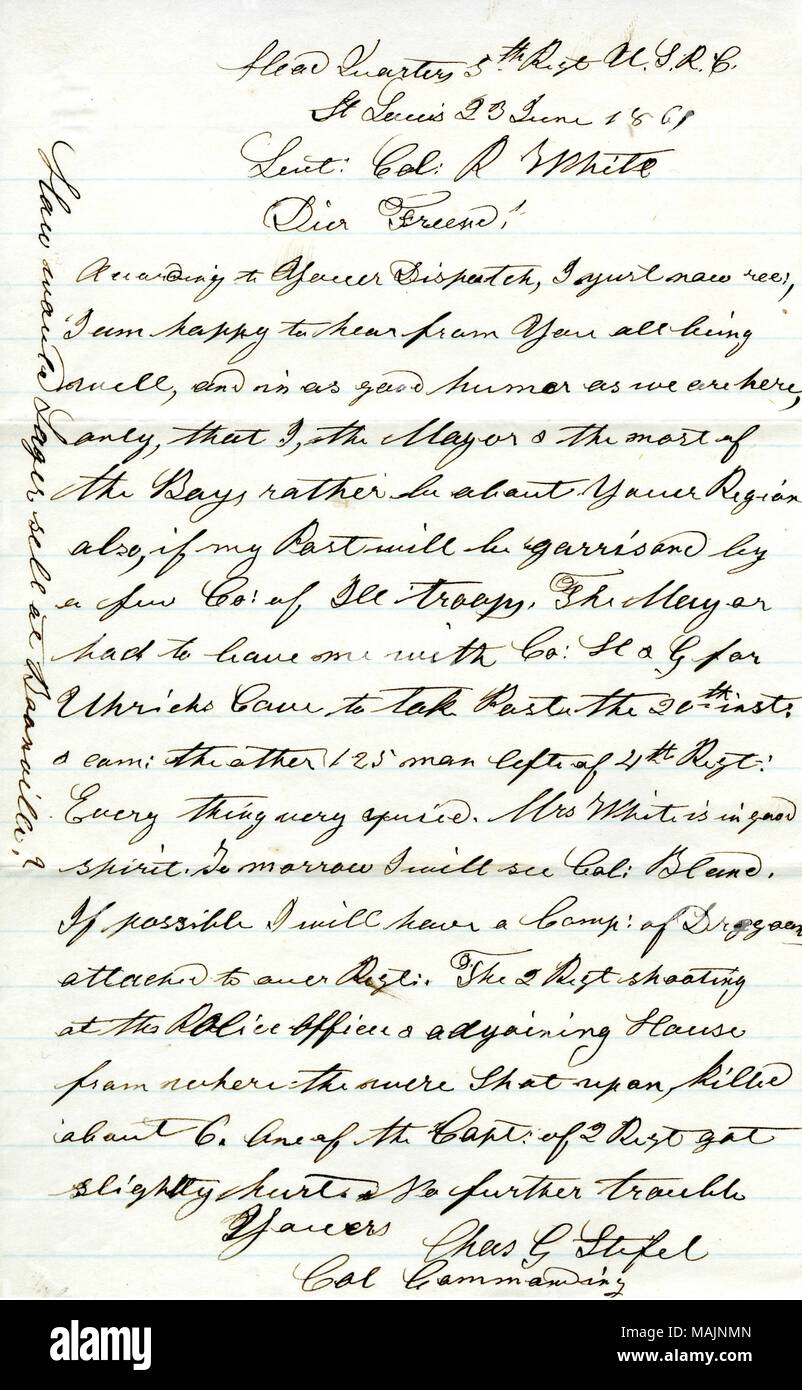 Head Quarters 5th Regt U. S. R. C.
St Louis 23 June 1861
Leut: Col: R White
Dier Freend!
According to Youer Dispatch, I yust now rec:,
I am happy to hear from You all being
well, and in as good humor as we are here,
only, that I, the Mayor & the most of
the Boys rather be about Youer Region
also, if my Post will be garrisond by
a few Co: of Ill troops. The Mayor
had to leave me with Co: H & G for
Uhrichs Cave to tak Post the 20th inst:
& com: the other 125 man left of 4th Regt:
Every thing very quied. Mrs White is in good
spirit. To morrow I will see Col: Bland.
If possible I will have a Comp: of Dragoons
attached to ouer Regt:. The 2 Regt shooting
at the Police office & adyoining House
from where the were shot upon, killed
about 6. One of the Capt: of 2 Regt got
slightly hurt. No further trouble
Youers
Chas G Stifel
Col Commanding
How would Lager sell at Boonville?
alamy
Image ID: MAJNMN
www.alamy.com